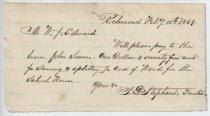 Richmond Feby 11th 1864
Mr W. J. Edward
Will please pay to the
bearer John Isaac One Dollar & seventy five cents
for Sawing & splitting ½ Cord of Wood for the
School House
Yours &c
Stephens Trustee